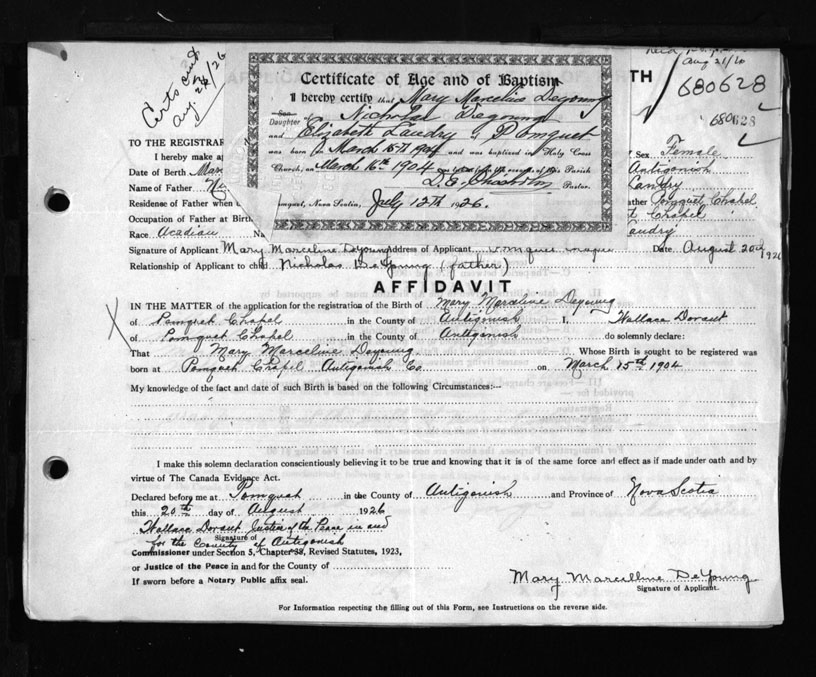 Certs out
Aug. 24/26
Aug 21/26
TH
680628
680628
Certificate of Age and of Baptism
I hereby certify that Mary Marceline Deyoung
Son
Daughter of Nicholas Deyoung
and Elizabeth Landry of Pomquet
was born March 15th 1904 and was baptized in Holy Cross
Church, on March 16th 1904 according to the records of this Parish
Pastor.
Pomquet, Nova Scotia, July 12th 1926.
TO THE REGISTRAR
I hereby make ap
Sex Female
Date of Birth Mar
Antigonish
Name of Father Ni
Landry
Residense of Father when
ather Pomquet Chapel
Occupation of Father at Birth
t Chapel
Race Acadian Na
Landry
Signature of Applicant Mary Marceline DeYoung Address of Applicant Date August 20th 1926
Relationship of Applicant to child Nicholas DeYoung (father)
AFFIDAVIT
IN THE MATTER of the application for the registration of the Birth of Mary Marceline Deyoung
of Pomquet Chapel in the County of Antigonish I, Wallace Dorant
of Pomquet Chapel in the County of Antigonish do solemnly declare:
That Mary Marceline Deyoung Whose Birth is sought to be registered was
born at Pomquet Chapel Antigonish Co. on March 15th 1904
My knowledge of the fact and date of such Birth is based on the following Circumstances:—
I make this solemn declaration conscientiously believing it to be true and knowing that it is of the same force and effect as if made under oath and by
virtue of The Canada Evidence Act.
Declared before me at Pomquet in the County of Antigonish and Province of Nova Scotia
this 20th day of August 1926
Wallace Dorant Justice of the Peace in and
Signature of
for the County of Antigonish
Commissioner under Section 5, Chapter 38, Revised Statutes, 1923,
or Justice of the Peace in and for the County of
If sworn before a Notary Public affix seal.
Mary Marcelline DeYoung
Signature of Applicant.
For Information respecting the filling out of this Form, see Instructions on the reverse side.